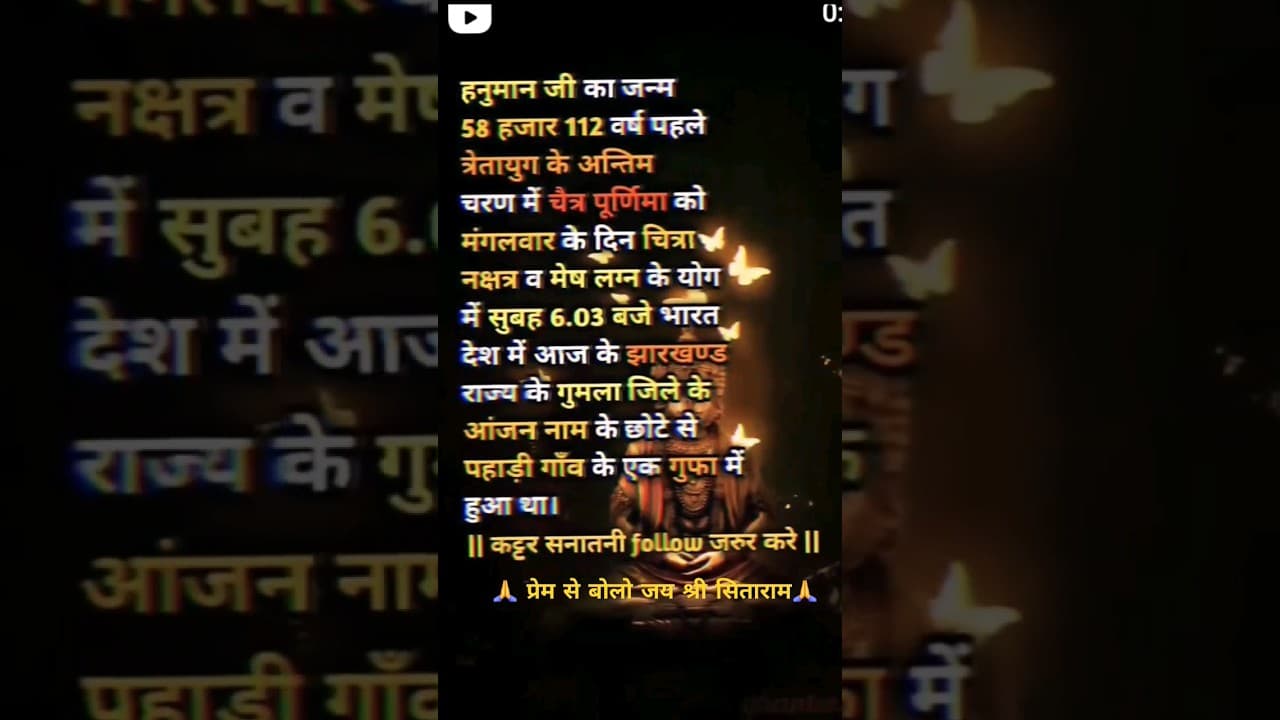 0:
हनुमान जी का जन्म
58 हजार 112 वर्ष पहले
त्रेतायुग के अन्तिम
चरण में चैत्र पूर्णिमा को
मंगलवार के दिन चित्रा
नक्षत्र व मेष लग्न के योग
में सुबह 6.03 बजे भारत
देश में आज के झारखण्ड
राज्य के गुमला जिले के
आंजन नाम के छोटे से
पहाड़ी गाँव के एक गुफा में
हुआ था।
|| कट्टर सनातनी follow जरुर करे ||
🙏 प्रेम से बोलो जय श्री सिताराम🙏